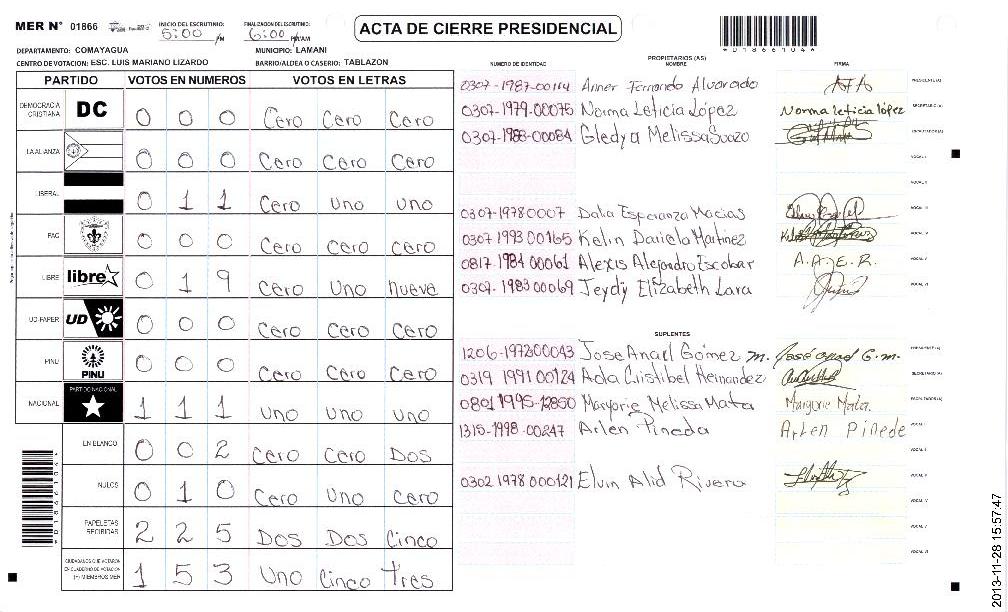 MER N° 01866 INICIO DEL ESCRUTINIO: 5:00 PM FINALIZACION DEL ESCRUTINIO: 6:00 PM/AM ACTA DE CIERRE PRESIDENCIAL
DEPARTAMENTO: COMAYAGUA MUNICIPIO: LAMANI
CENTRO DE VOTACION: ESC. LUIS MARIANO LIZARDO BARRIO/ALDEA O CASERIO: TABLAZON
PARTIDO VOTOS EN NUMEROS VOTOS EN LETRAS
DEMOCRACIA CRISTIANA DC 0 0 0 Cero Cero Cero
LA ALIANZA 0 0 0 Cero Cero Cero
LIBERAL 0 1 1 Cero uno uno
PAC 0 0 0 Cero Cero Cero
LIBRE libre 0 1 9 Cero Uno nueve
UD-FAPER UD 0 0 0 Cero Cero Cero
PINU PINU 0 0 0 Cero Cero Cero
NACIONAL PARTIDO NACIONAL 1 1 1 uno uno uno
EN BLANCO 0 0 2 Cero Cero Dos
NULOS 0 1 0 Cero uno Cero
PAPELETAS RECIBIDAS 2 2 5 Dos Dos Cinco
CIUDADANOS QUE VOTARON EN CUADERNO DE VOTACION (+) MIEMBROS MER 1 5 3 Uno Cinco Tres
PROPIETARIOS (AS)
NUMERO DE IDENTIDAD NOMBRE FIRMA
0307-1987-00114 Anner Fernando Alvarado PRESIDENTE(A)
0307-1979-00075 Norma Leticia López Norma leticia lópez SECRETARIO(A)
0307-1988-00084 Gledya Melissa Suazo ESCRUTADOR(A)
VOCAL I
VOCAL II
0307-19780007 Dalia Esperanza Macias VOCAL III
0307 1993 00165 Kelin Dariela Martinez VOCAL IV
0817-1984 00061 Alexis Alejandro Escobar A.A.E.R. VOCAL V
0307-1983 00069 Jeydy Elizabeth Lara VOCAL VI
SUPLENTES
1206-197200043 Jose Anael Gómez m. José anael G.m. PRESIDENTE(A)
0319 1991 00124 Ada Cristibel Hernandez SECRETARIO(A)
0801 1995-12850 Maryorie Melissa Mata Maryorie Mata. ESCRUTADOR(A)
1315-1998-00247 Arlen Pineda Arlen Pinede VOCAL I
VOCAL II
0302 1978 000121 Elvin Alid Rivera VOCAL III
VOCAL IV
VOCAL V
VOCAL VI
2013-11-28 15:57:47